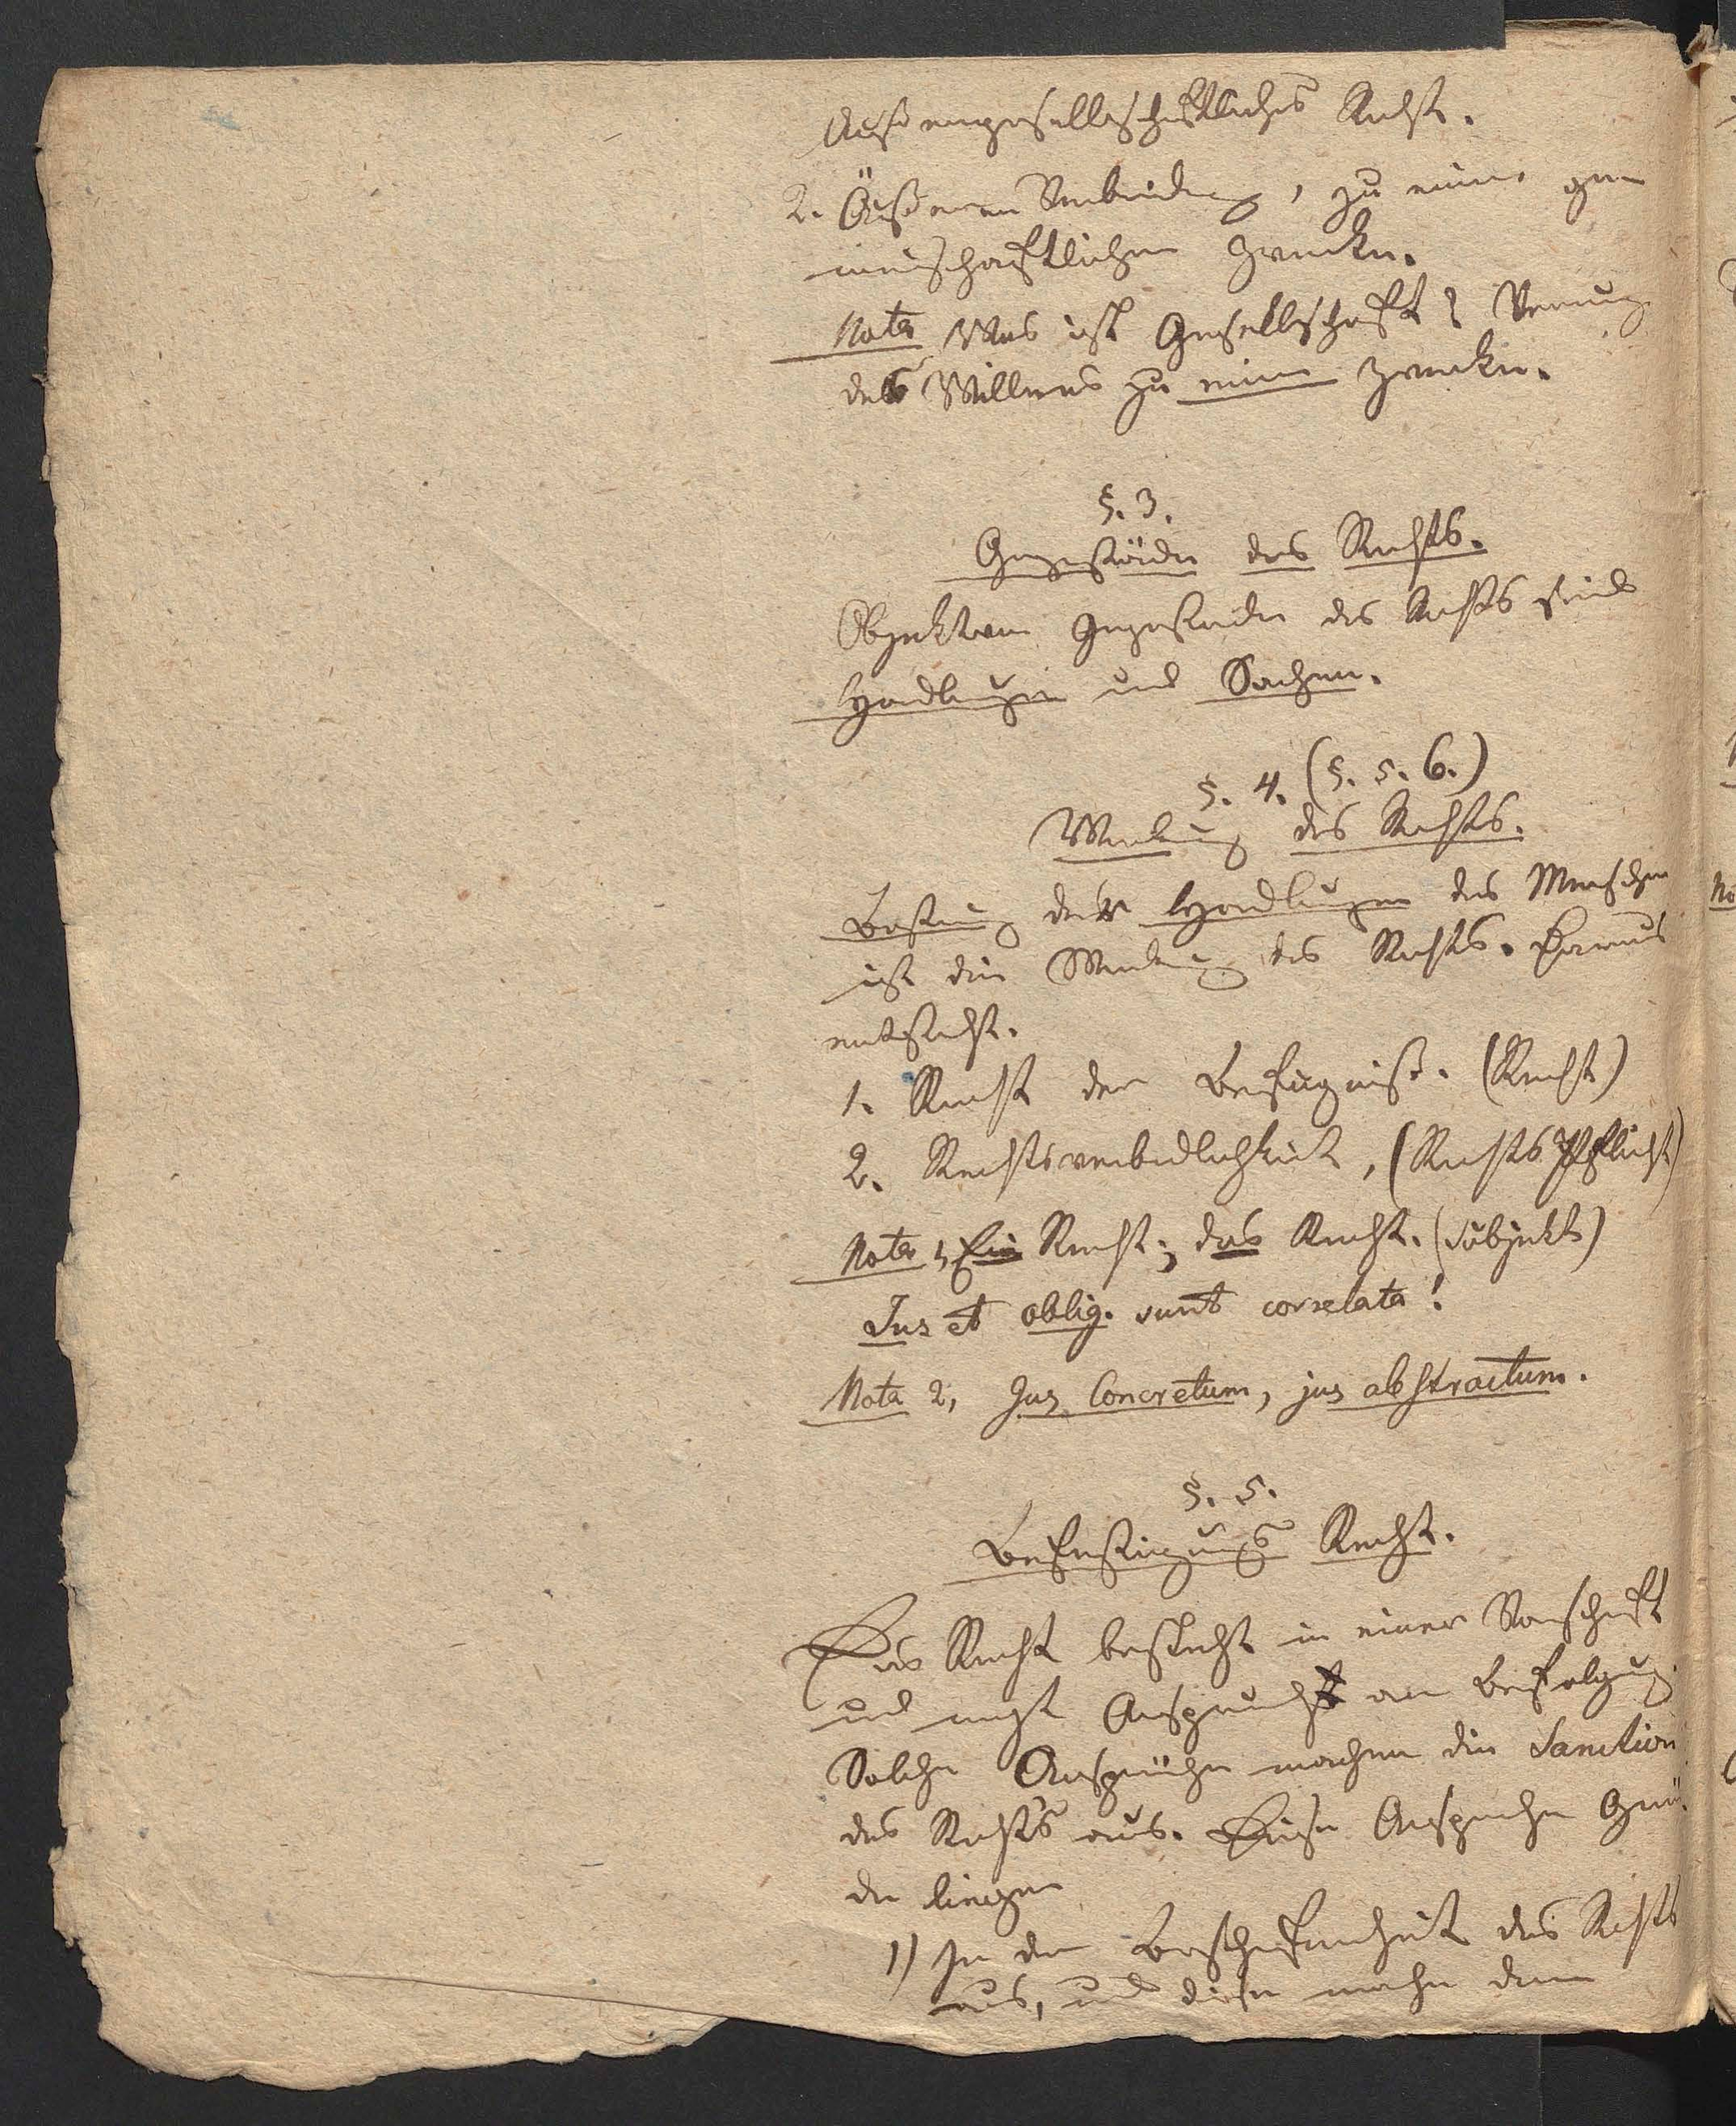 Außengesellschaftliches Recht.
2. Äußeren Verbindung, zu einem ge
meinschaftlichen Zwecke.
Nota Was ist Gesellschaft?
des Willens zu einem Zwecke.
§. 3.
Gegenstände des Rechts.
Objekte Gegenstände des Rechts sind
Handlungen und Sachen.
§. 4. (§. 5. 6.)
des Rechts.
der Handlungen des Menschen
ist die des Rechts. Hieraus
entsteht.
1. Recht der Befugniß. (Recht)
2. Rechtsverbindlichkeit, (Rechts Pflicht)
Nota 1, Ein Recht; das Recht. (Subjekt)
Jus et oblig. sunt correlata!
Nota 2, Jus Concretum, jus abstractum.
§. 5.
Befestigungs Recht.
Das Recht besteht in einer Vorschrift
und macht Anspruch an Befolgung.
Solche Ansprüche machen die Sanction
des Rechts aus. Dieser Ansprüche Grün
de liegen
1) In der Beschaffenheit des Rechts
aus, und diese